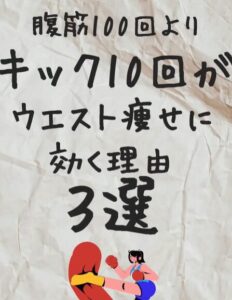 腹筋100回より
キック10回が
ウエスト痩せに
効く理由
3選